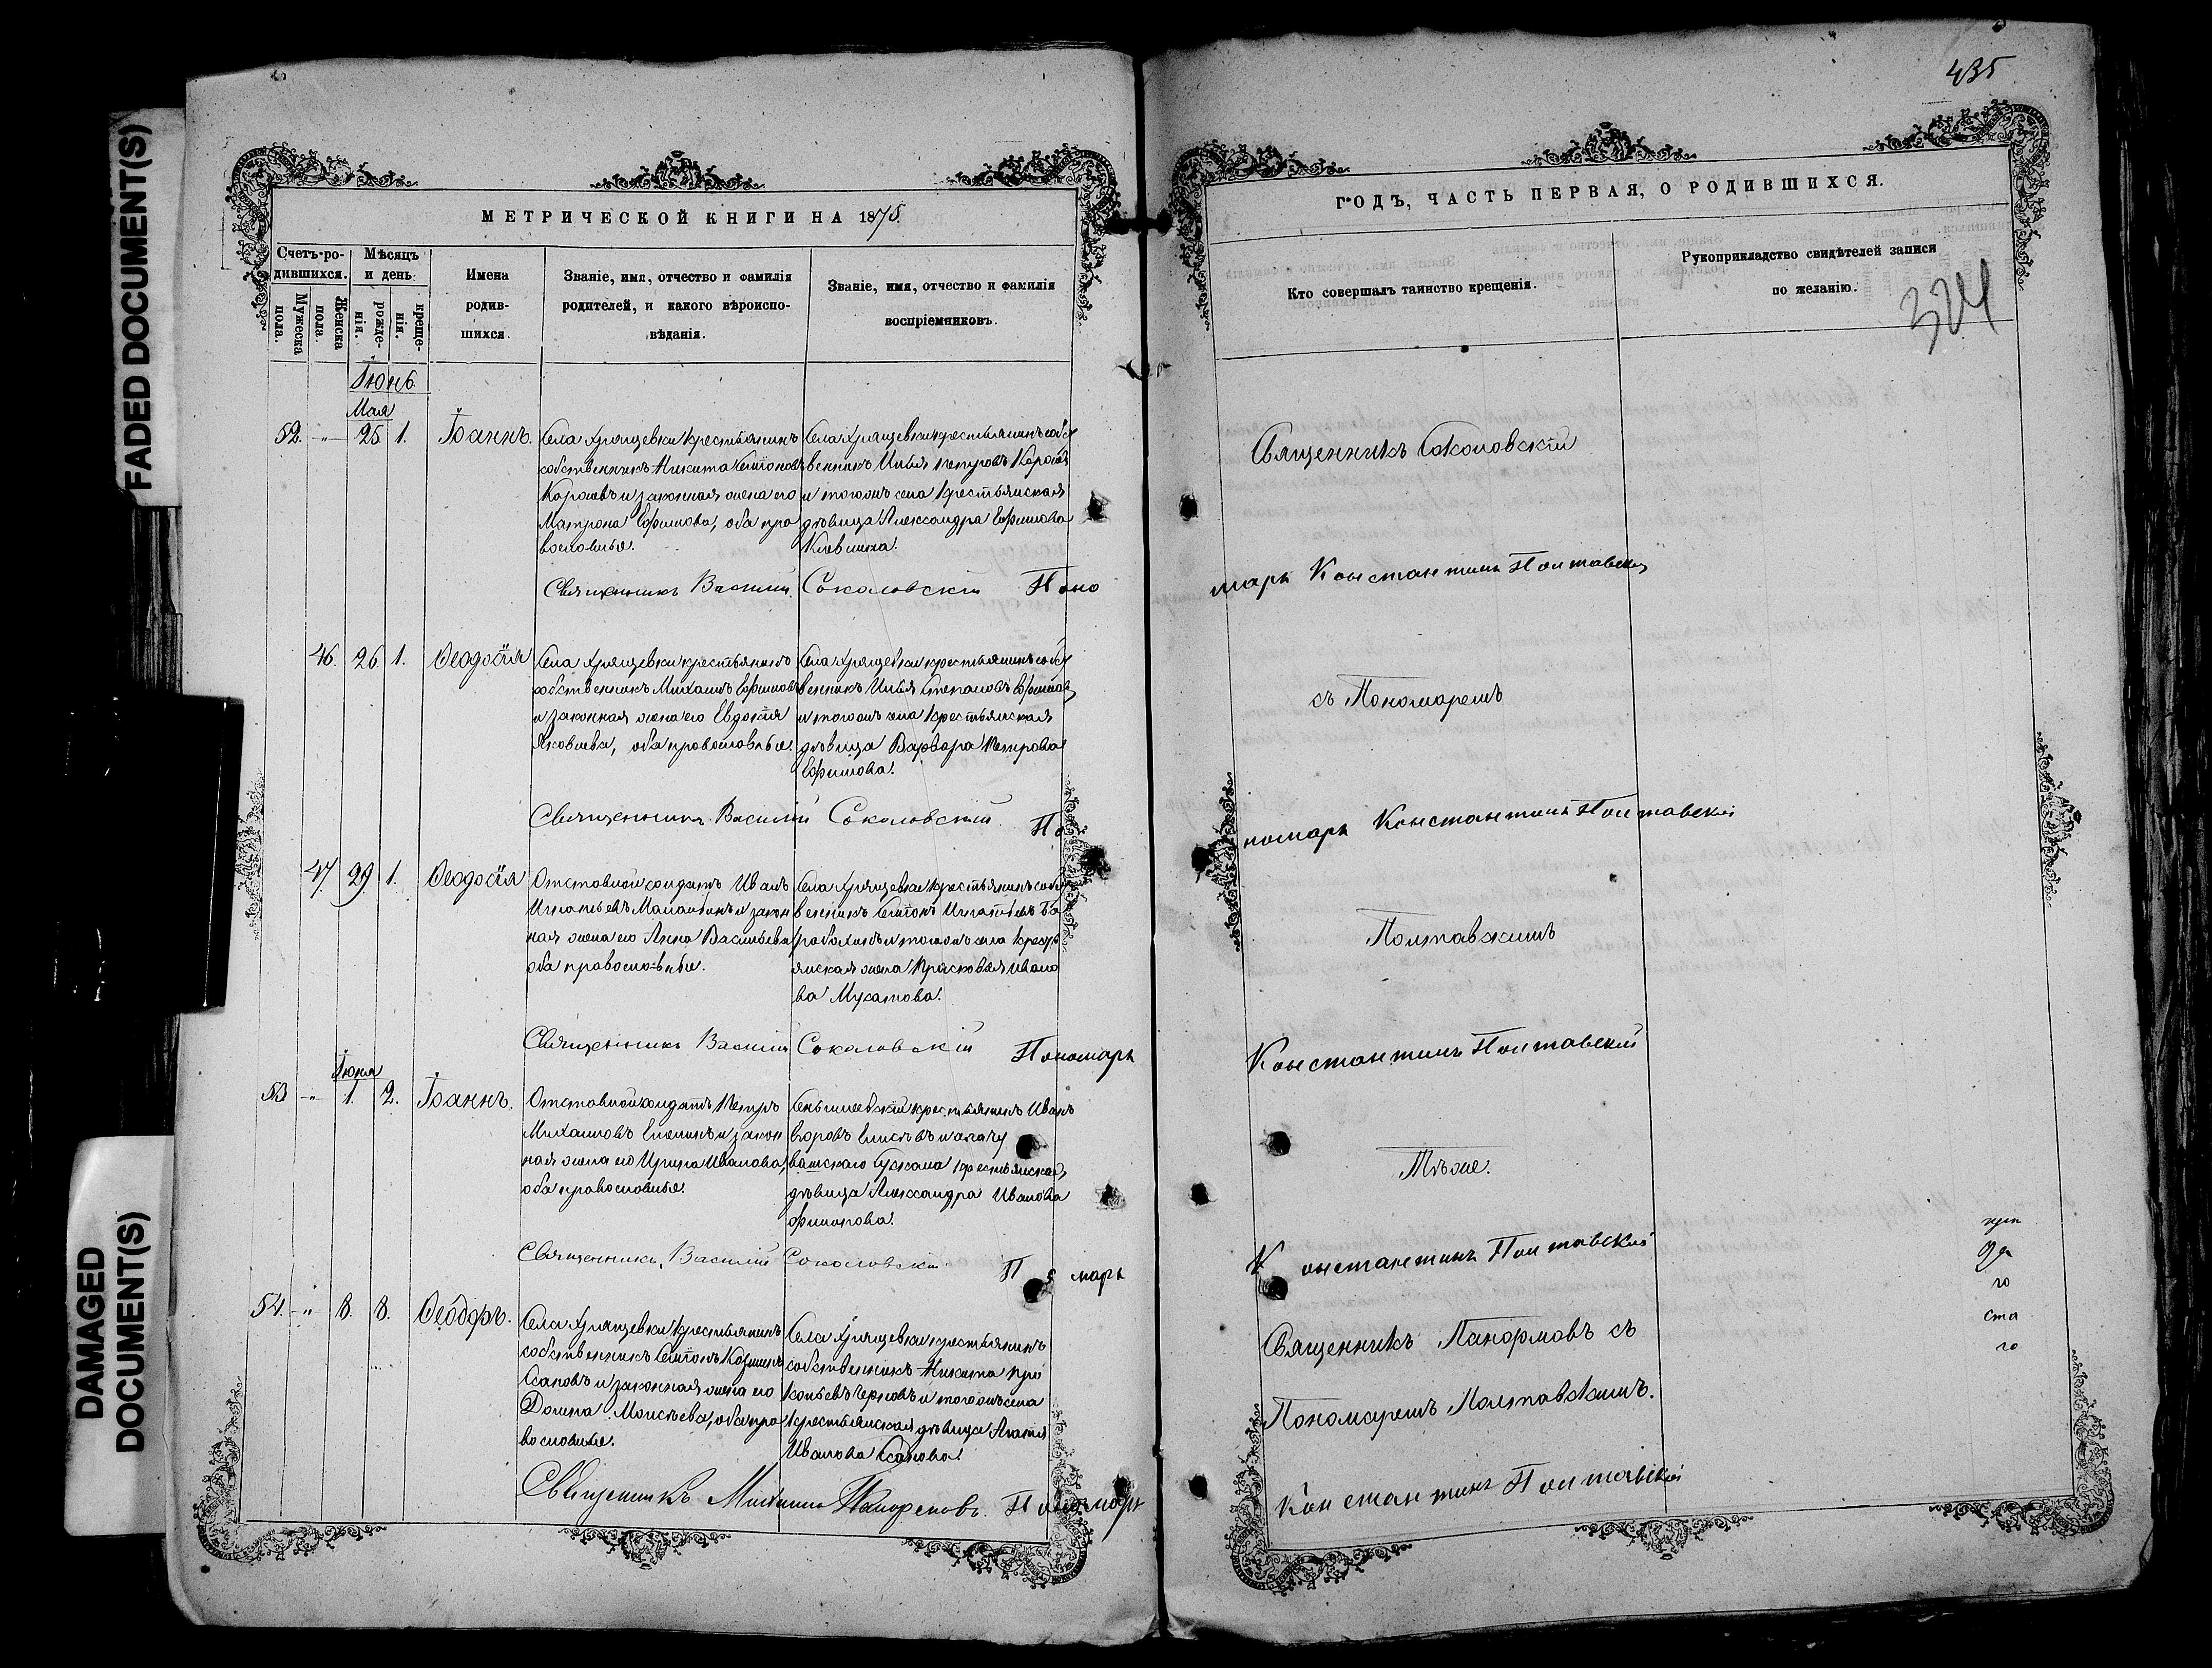 FADED DOCUMENT(S)
DAMAGED
DOCUMENT(S)
МЕТРИЧЕСКОЙ КНИГИ НА 1875
Счетъ ро-
дившихся.
Мужеска
пола.
Женска
пола.
Мѣсяцъ
и день
рожде-
нія.
креще-
нія.
Имена
родив-
шихся.
Званіе, имя, отчество и фамилія
родителей, и какого вѣроиспо-
вѣданія.
Званіе, имя, отчество и фамилія
воспріемниковъ.
Іюнь
Мая
52. " 25 1. Іоаннъ.
Села Хрящевки крестьянинъ
собственникъ Никита Семіоновъ
и законная жена его
Матрона Ефимова, оба пра
вославные.
Села Хрящевки крестьянинъ собст
венникъ Илья Петровъ
и тогожъ села крестьянская
дѣвица Александра Ефимова
Священникъ Василій Соколовскій Поно
46. 26 1. Ѳеодосія
Села Хрящевки крестьянинъ
собственникъ Михаилъ Ефимовъ
и законная жена его Евдокія
Яковлева, оба православные.
Села Хрящевки крестьянинъ собст
венникъ Илья Степановъ Ефимовъ
и тогожъ села крестьянская
дѣвица Варвара Петрова
Ефимова.
Священникъ Василій Соколовскій. По
47. 29 1. Ѳеодосія
Отставной солдатъ Иванъ
Игнатьевъ и закон
ная жена его Анна Васильева
оба православные.
Села Хрящевки крестьянинъ собст
венникъ Семіонъ Игнатьевъ
и тогожъ села крестья
янская жена Прасковья Ивано
ва Мухатова.
Священникъ Василій Соколовскій Пономарь
Іюня
53 " 1. 2. Іоаннъ.
Отставной солдатъ Петръ
Михаиловъ и закон
ная жена его Ирина Иванова,
оба православные.
крестьянинъ Иванъ
крестьянская
дѣвица Александра Иванова
Филипова.
Священникъ Василій Соколовскій П марь
54. " 8. 8. Ѳеодоръ.
Села Хрящевки крестьянинъ
собственникъ Семіонъ Козминъ
и законная жена его
Домна Моисѣева, оба пра
вославные.
Села Хрящевки крестьянинъ
собственникъ Никита Про
копьевъ Черновъ и тогожъ села
крестьянская дѣвица
Иванова
Священникъ Михаилъ Панормовъ. Пономарь
435
ГОДЪ, ЧАСТЬ ПЕРВАЯ, О РОДИВШИХСЯ.
Кто совершалъ таинство крещенія.
Рукоприкладство свидѣтелей записи
по желанію.
324
Священникъ Соколовскій
марь Константинъ Полтавскій
съ Пономаремъ
номарь Константинъ Полтавскій
Полтавскимъ
Константинъ Полтавскій
Тѣже.
Константинъ Полтавскій
Священникъ Панормовъ съ
Пономаремъ Полтавскимъ.
Константинъ Полтавскій
го
ста
го